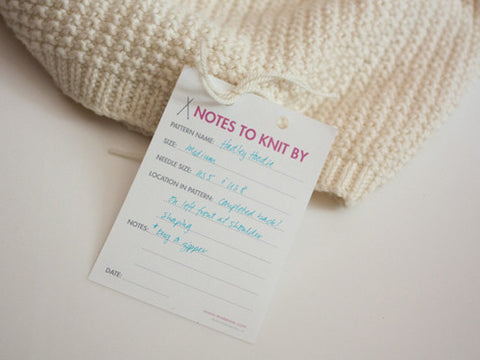 NOTES TO KNIT BY
PATTERN NAME: Harley Hoodie
SIZE: medium
NEEDLE SIZE: US 5 & US 8
LOCATION IN PATTERN: Completed back!
on left front at shoulder
shaping
NOTES: * buy a zipper
DATE: